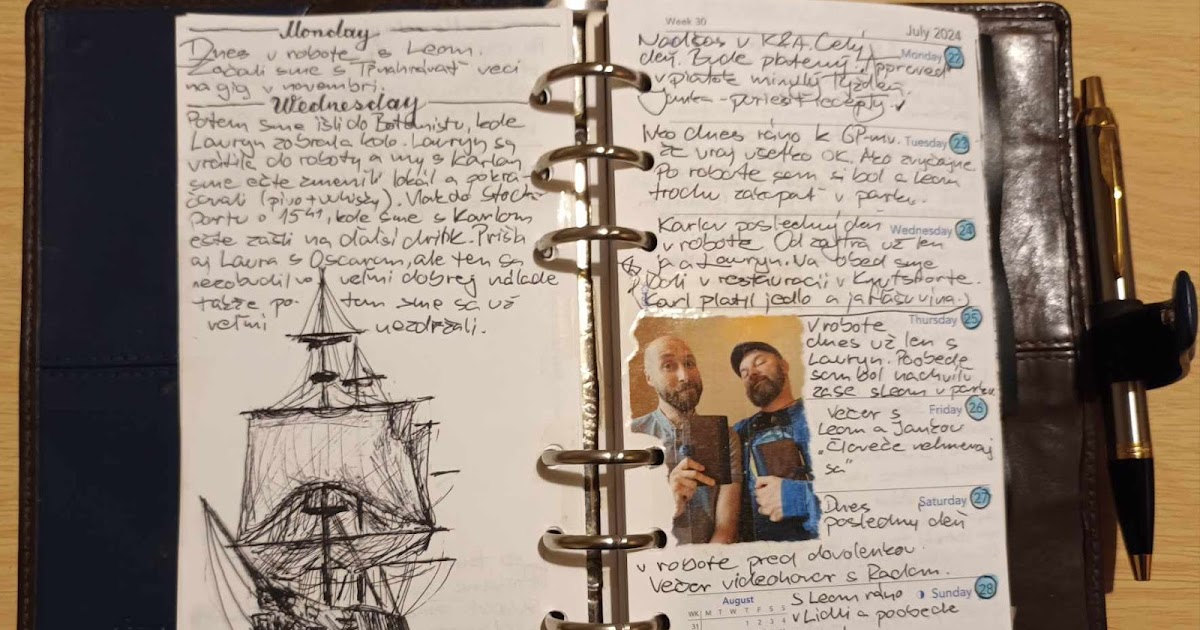 Monday
Dnes v robote s Leom.
Začali sme s T nahrávať veci
na gig v novembri.
Wednesday
Potom sme išli do Botanistu, kde
Lauryn zobrala kolo. Lauryn sa
vrátila do roboty a my s Karlom
sme ešte zmenili lokál a pokra-
čovali (pivo + whisky). Vlak do Stock-
portu o 15⁴¹, kde sme s Karlom
ešte zašli na ďalší drink. Prišla
aj Laura s Oscarom, ale ten sa
nezobudil vo veľmi dobrej nálade
takže po- tom sme sa už
veľmi nezdržali.
Week 30
July 2024
Nadčas v K&A. Celý
Monday 22
deň. Bude platený. Approved
v piatok minulý týždeň.
Janka - poriešiť recepty. ✓
Tuesday 23
Išiel dnes ráno k GP-mu.
že vraj všetko OK. Ako zvyčajne
Po robote som si bol a Leom
trochu zakopať v parku.
Wednesday 24
Karlov posledný deň
v robote. Od zajtra už len
ja a Lauryn. Na obed sme
boli v reštaurácii v Knutsforde.
(Karl platil jedlo a ja fľašu vína.)
Thursday 25
V robote
dnes už len s
Lauryn. Poobede
som bol nachvíľu
zase s Leom v parku.
Friday 26
Večer s
Leom a Jankou
„Človeče nehnevaj
sa"
Saturday 27
Dnes
posledný deň
v robote pred dovolenkou.
Večer videohovor s Radom.
Sunday 28
S Leom ráno
v Lidli a poobede
August
WK M T W T F S S
31 1 2 3 4